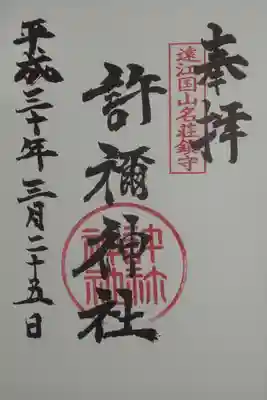 奉拝
遠江国山名荘鎮守
許禰神社
平成三十年三月二十五日